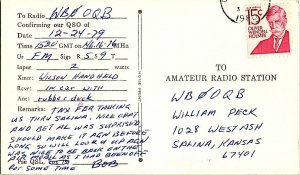 To Radio WBØOQB
Confirming our QSO of
Date 12-24-79
Time 1520 GMT on 46.16-76 MHz
Ur FM Sigs R 5 S 9 T
Input 2 watts
Xmtr WILSON HANDHELD
Rcvr in it
Ant: rubber duck
Remarks: TNX FER TALKING
US THRU SALINA, NICE CHAT
AND BET AL WAS SUPRISED
SHOULD MAKE IT AGN BEFORE
LONG SO WILL LOOK U AGN
WAS NICE TO BE BACK ON THE
AIR MOBIL AS I HAD BEEN OFF
FOR SOME TIME
Pse QSL, BOB
15¢
OLIVER
WENDELL
HOLMES
TO
AMATEUR RADIO STATION
WBØOQB
WILLIAM PECK
1028 WEST ASH
SALINA, KANSAS
67401